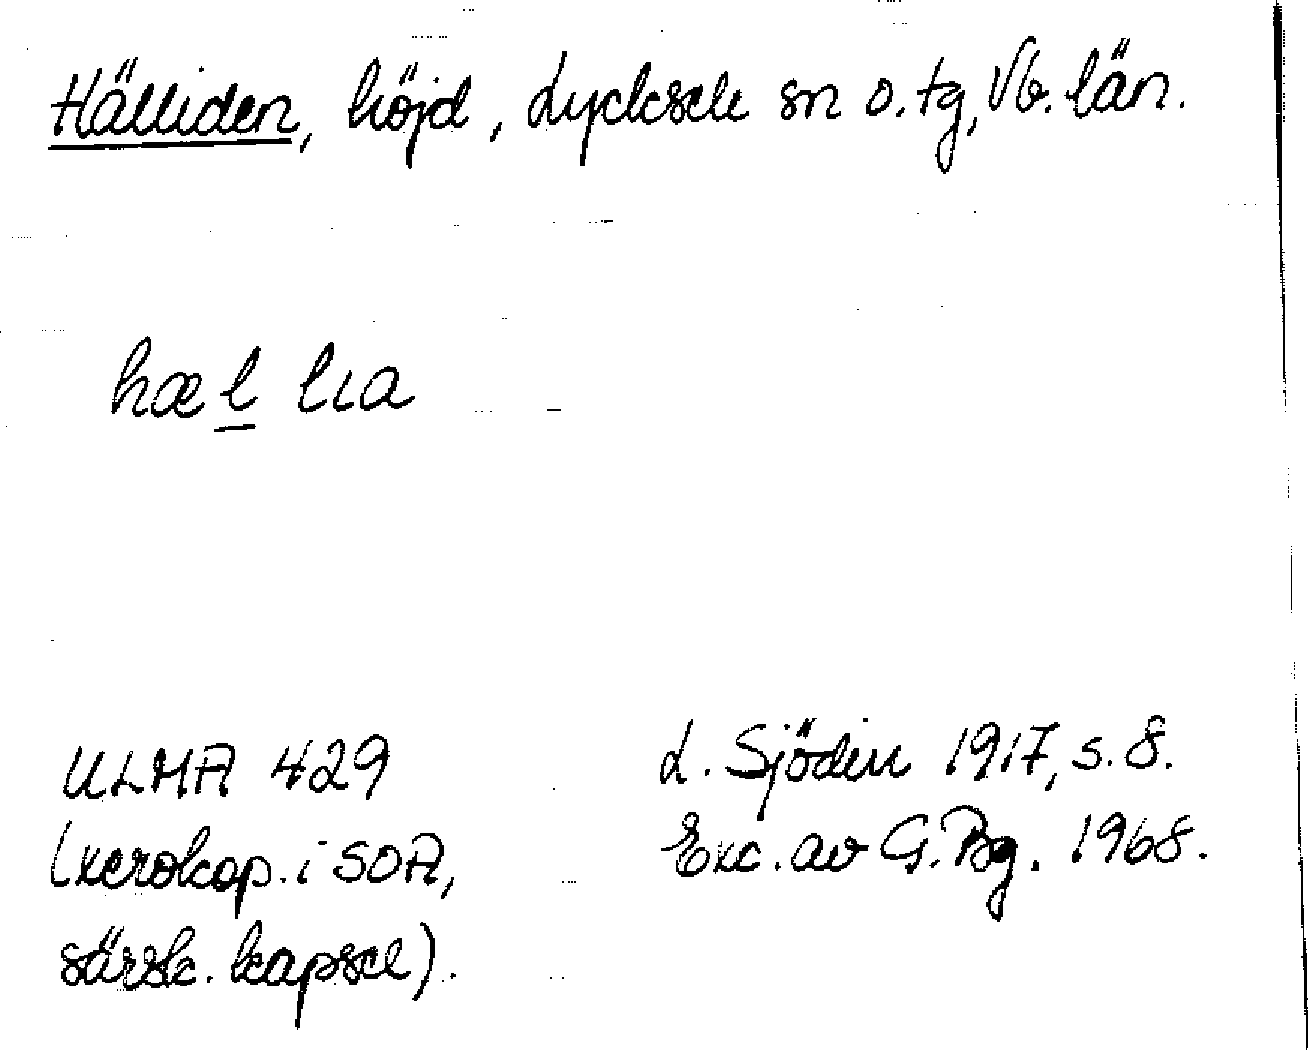 Hälliden, höjd, Lycksele sn o. tg, Vb. län.
hæl lıa
ULMA 429
(xerokop. i SOA,
särsk. kapsel).
L. Sjödin 1917, s. 8.
Exc. av G. Bg. 1968.